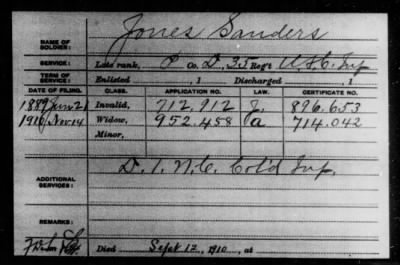 NAME OF SOLDIER: Jones Sanders
SERVICE: Late rank, P Co. D, 33 Reg't U.S.C. Inf
TERM OF SERVICE: Enlisted , 1 Discharged , 1
DATE OF FILING. CLASS. APPLICATION NO. LAW. CERTIFICATE NO.
1889 Jun 21 Invalid, 712,912 J. 896.653
1910 Nov 14 Widow, 952.458 a 714.042
Minor,
ADDITIONAL SERVICES: D. 1. N.C. Col'd Inf.
REMARKS:
Died Sept 12, 1910, at